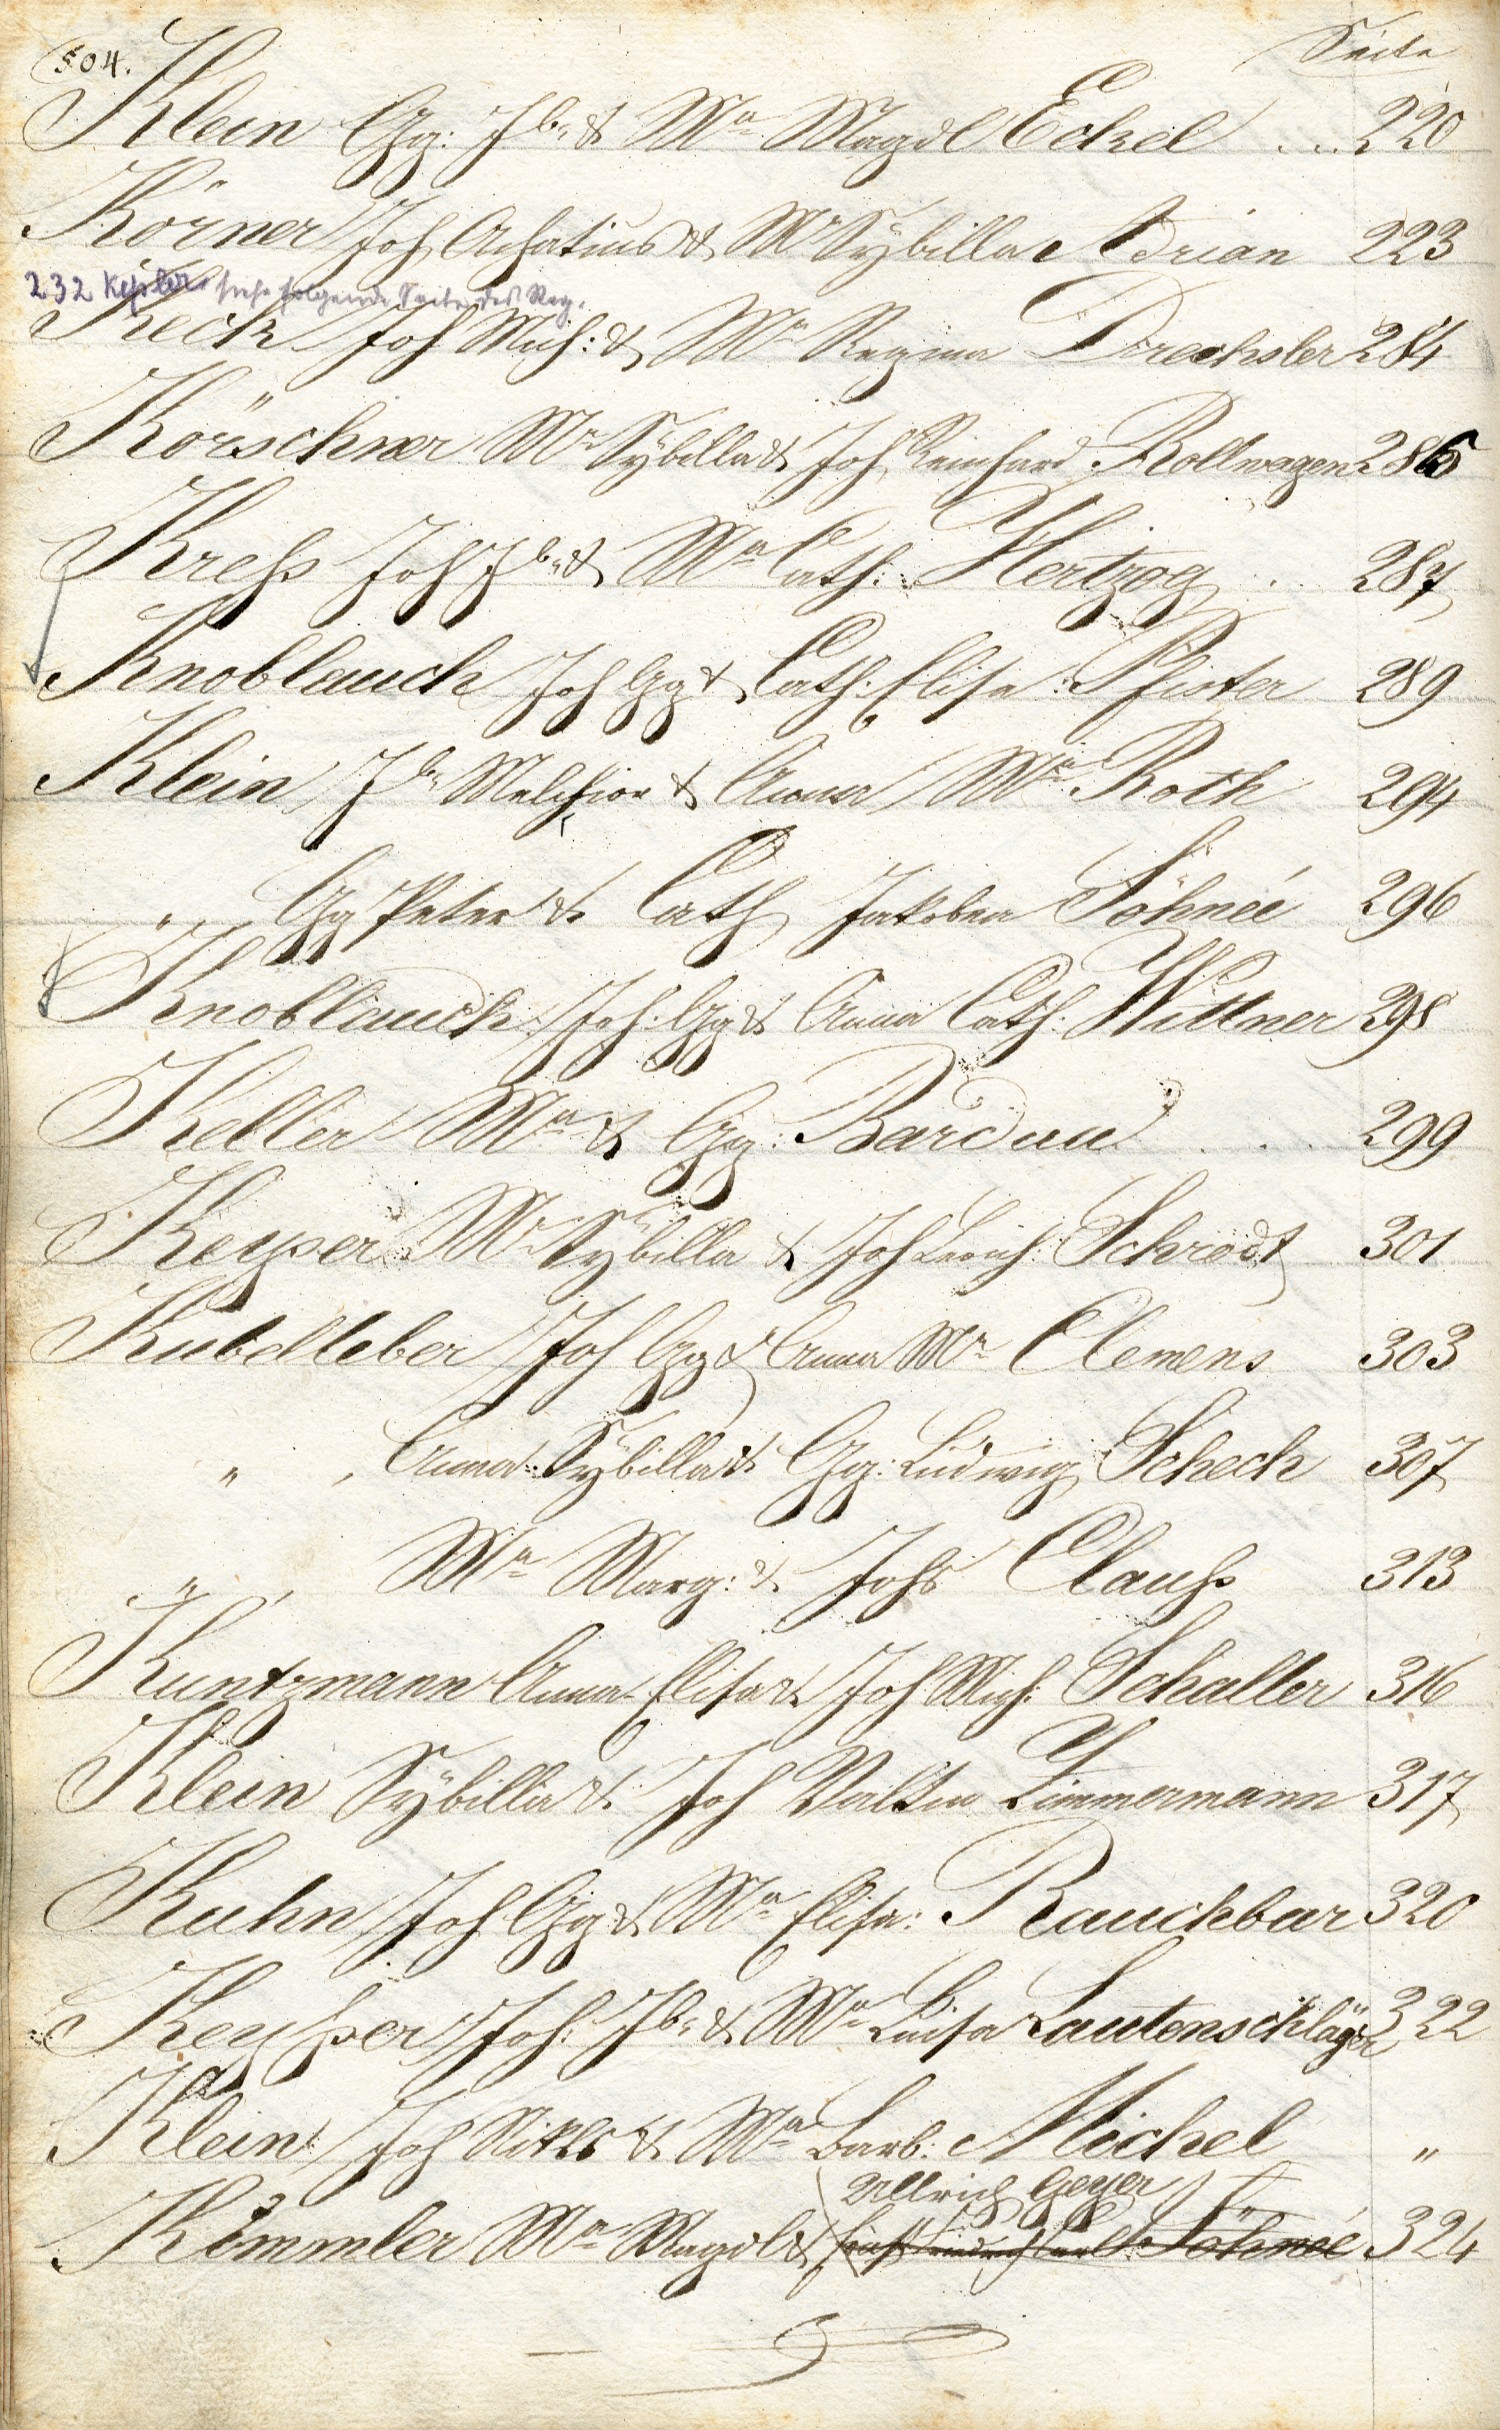 504.
Seite
Klein Gg: Jb. & Ma Magdl Eckel .... 220
Körner Joh Achatius & Ma Sybilla Adrian 223
232 Keßler siehe folgende Seite des Reg.
Keck Joh Mich: & Ma Regina Drechsler 284
Körschner Ma Sybilla & Joh Reinhard Rollwagen 286
Kreß Joh Jb. & Ma Cath: Hertzog . 287
Knoblauch Joh Gg & Cath: Elisa: Pfister 289
Klein Jb. Melchior & Anna Ma Roth 294
" Gg Peter & Cath Jakobea Söhneé 296
Knoblauch Joh. Gg & Anna Cath: Wittner 298
Keller Ma & Gg: Bardau . . . 299
Keyser Ma Sybilla & Joh Heinh: Schredt 301
Kubelleber Joh Gg & Anna Ma Clemens 303
" , Anna Sybilla & Gg: Ludwig Schech 307
" , Ma Marg: & Johs Clauß 313
Kuntzmann Anna Elisa & Joh Mich: Schaller 316
Klein Sybilla & Joh Valtin Zimmermann 317
Kuhn Joh Gg & Ma Elisa: Rauchbar 320
Keyßer Joh: Jb. & Ma Luisa Lautenschläger 322
Klein Joh Nikls & Ma Barb: Michel "
Ullrich Geyer
Kimmler Ma Magdl & Söhneé 324